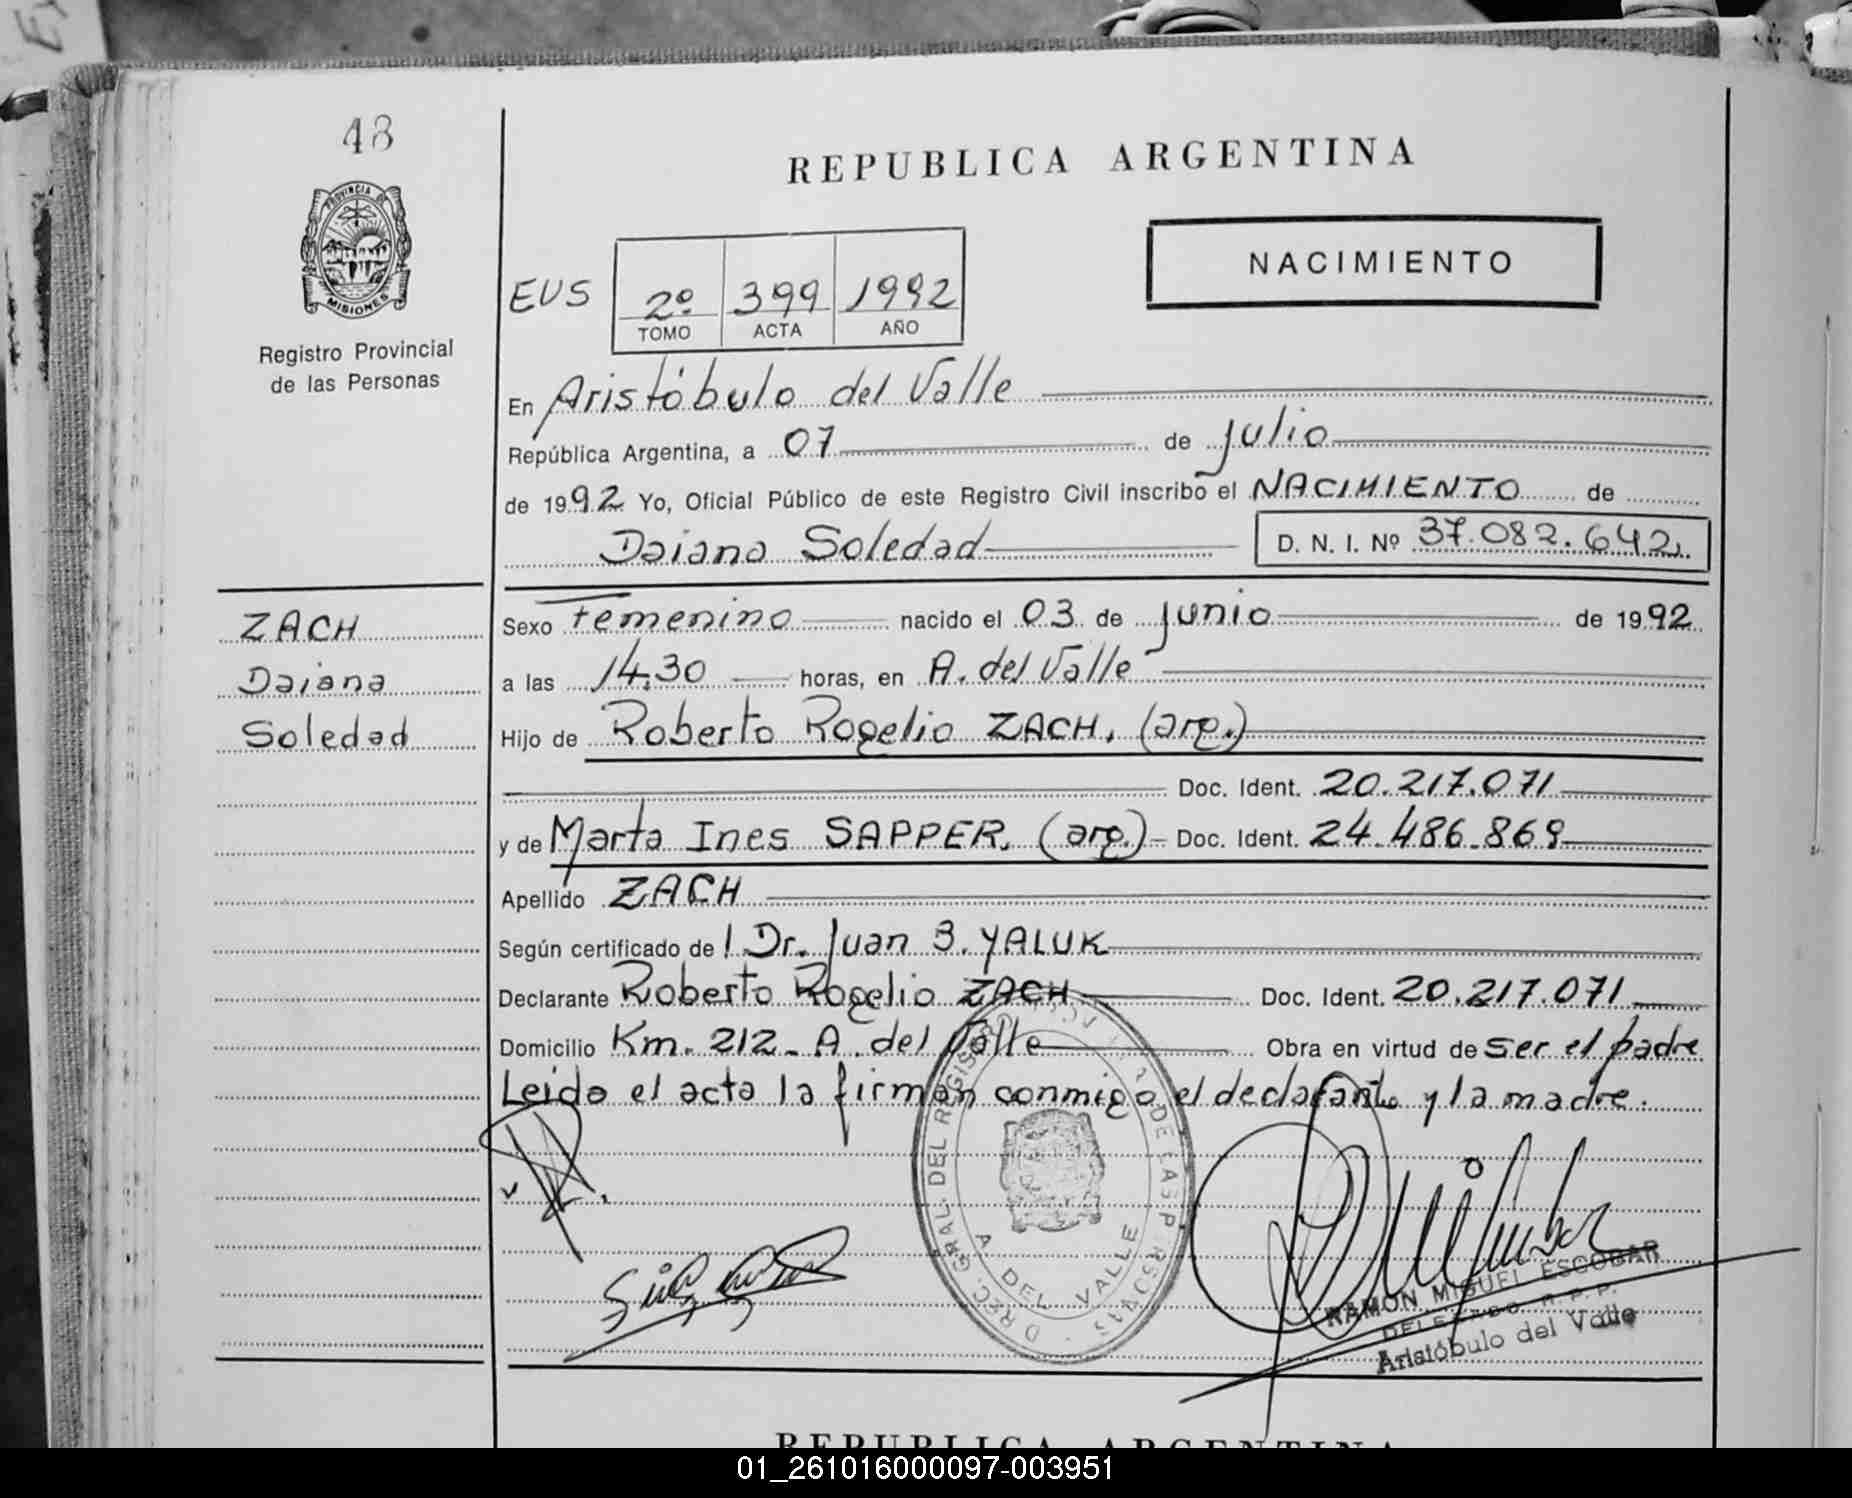 48
PROVINCIA DE
MISIONES
Registro Provincial
de las Personas
REPUBLICA ARGENTINA
NACIMIENTO
EUS 2º 399 1992
TOMO ACTA AÑO
En Aristóbulo del Valle
República Argentina, a 07 de Julio
de 1992 Yo, Oficial Público de este Registro Civil inscribo el NACIMIENTO de
Daiana Soledad D. N. I. Nº 37.082.642.
ZACH
Daiana
Soledad
Sexo femenino nacido el 03 de junio de 1992
a las 14,30 horas, en A. del Valle
Hijo de Roberto Rogelio ZACH. (arg.)
Doc. Ident. 20.217.071
y de Marta Ines SAPPER. (arg.) Doc. Ident. 24.486.869
Apellido ZACH
Según certificado de l Dr. Juan B. YALUK
Declarante Roberto Rogelio ZACH Doc. Ident. 20.217.071
Domicilio Km. 212 - A. del Valle Obra en virtud de ser el padre
Leida el acta la firman conmigo el declarante y la madre.
A DEL VALLE
RAMON MIGUEL ESCOBAR
DELEGADO R. P. P.
Aristóbulo del Valle
REPUBLICA ARGENTINA
01_261016000097-003951